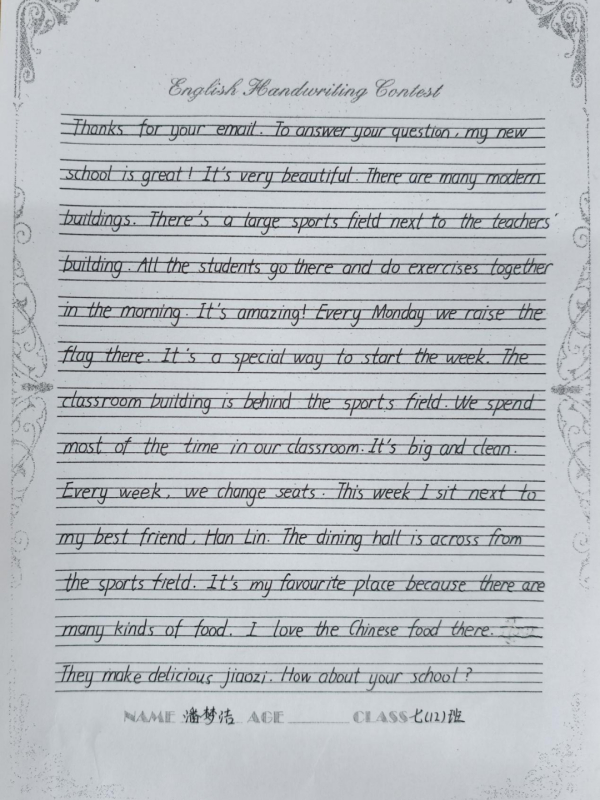 English Handwriting Contest
Thanks for your email. To answer your question, my new
school is great! It's very beautiful. There are many modern
buildings. There's a large sports field next to the teachers'
building. All the students go there and do exercises together
in the morning. It's amazing! Every Monday we raise the
flag there. It's a special way to start the week. The
classroom building is behind the sports field. We spend
most of the time in our classroom. It's big and clean.
Every week, we change seats. This week I sit next to
my best friend, Han Lin. The dining hall is across from
the sports field. It's my favourite place because there are
many kinds of food. I love the Chinese food there.
They make delicious jiaozi. How about your school?
NAME 潘梦洁 AGE CLASS 七(12)班